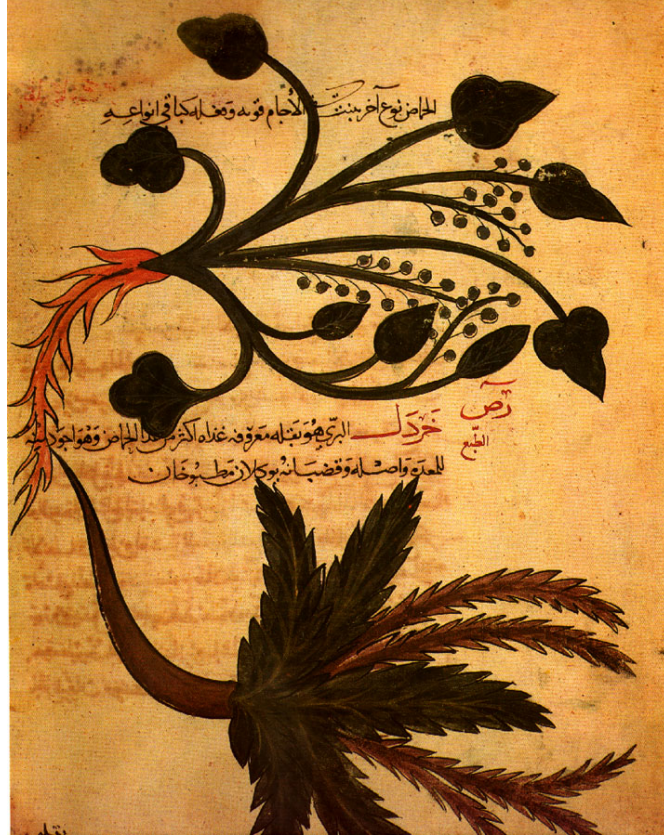 الحماض نوع آخر ينبت الآجام قوته وفعله كباقي انواعه
خردل البرّي هو بقله معروفه غذاه اكثر من الحماض وهو اجود
الطبع
للمعدة واصله وقضبانه يوكلان مطبوخان